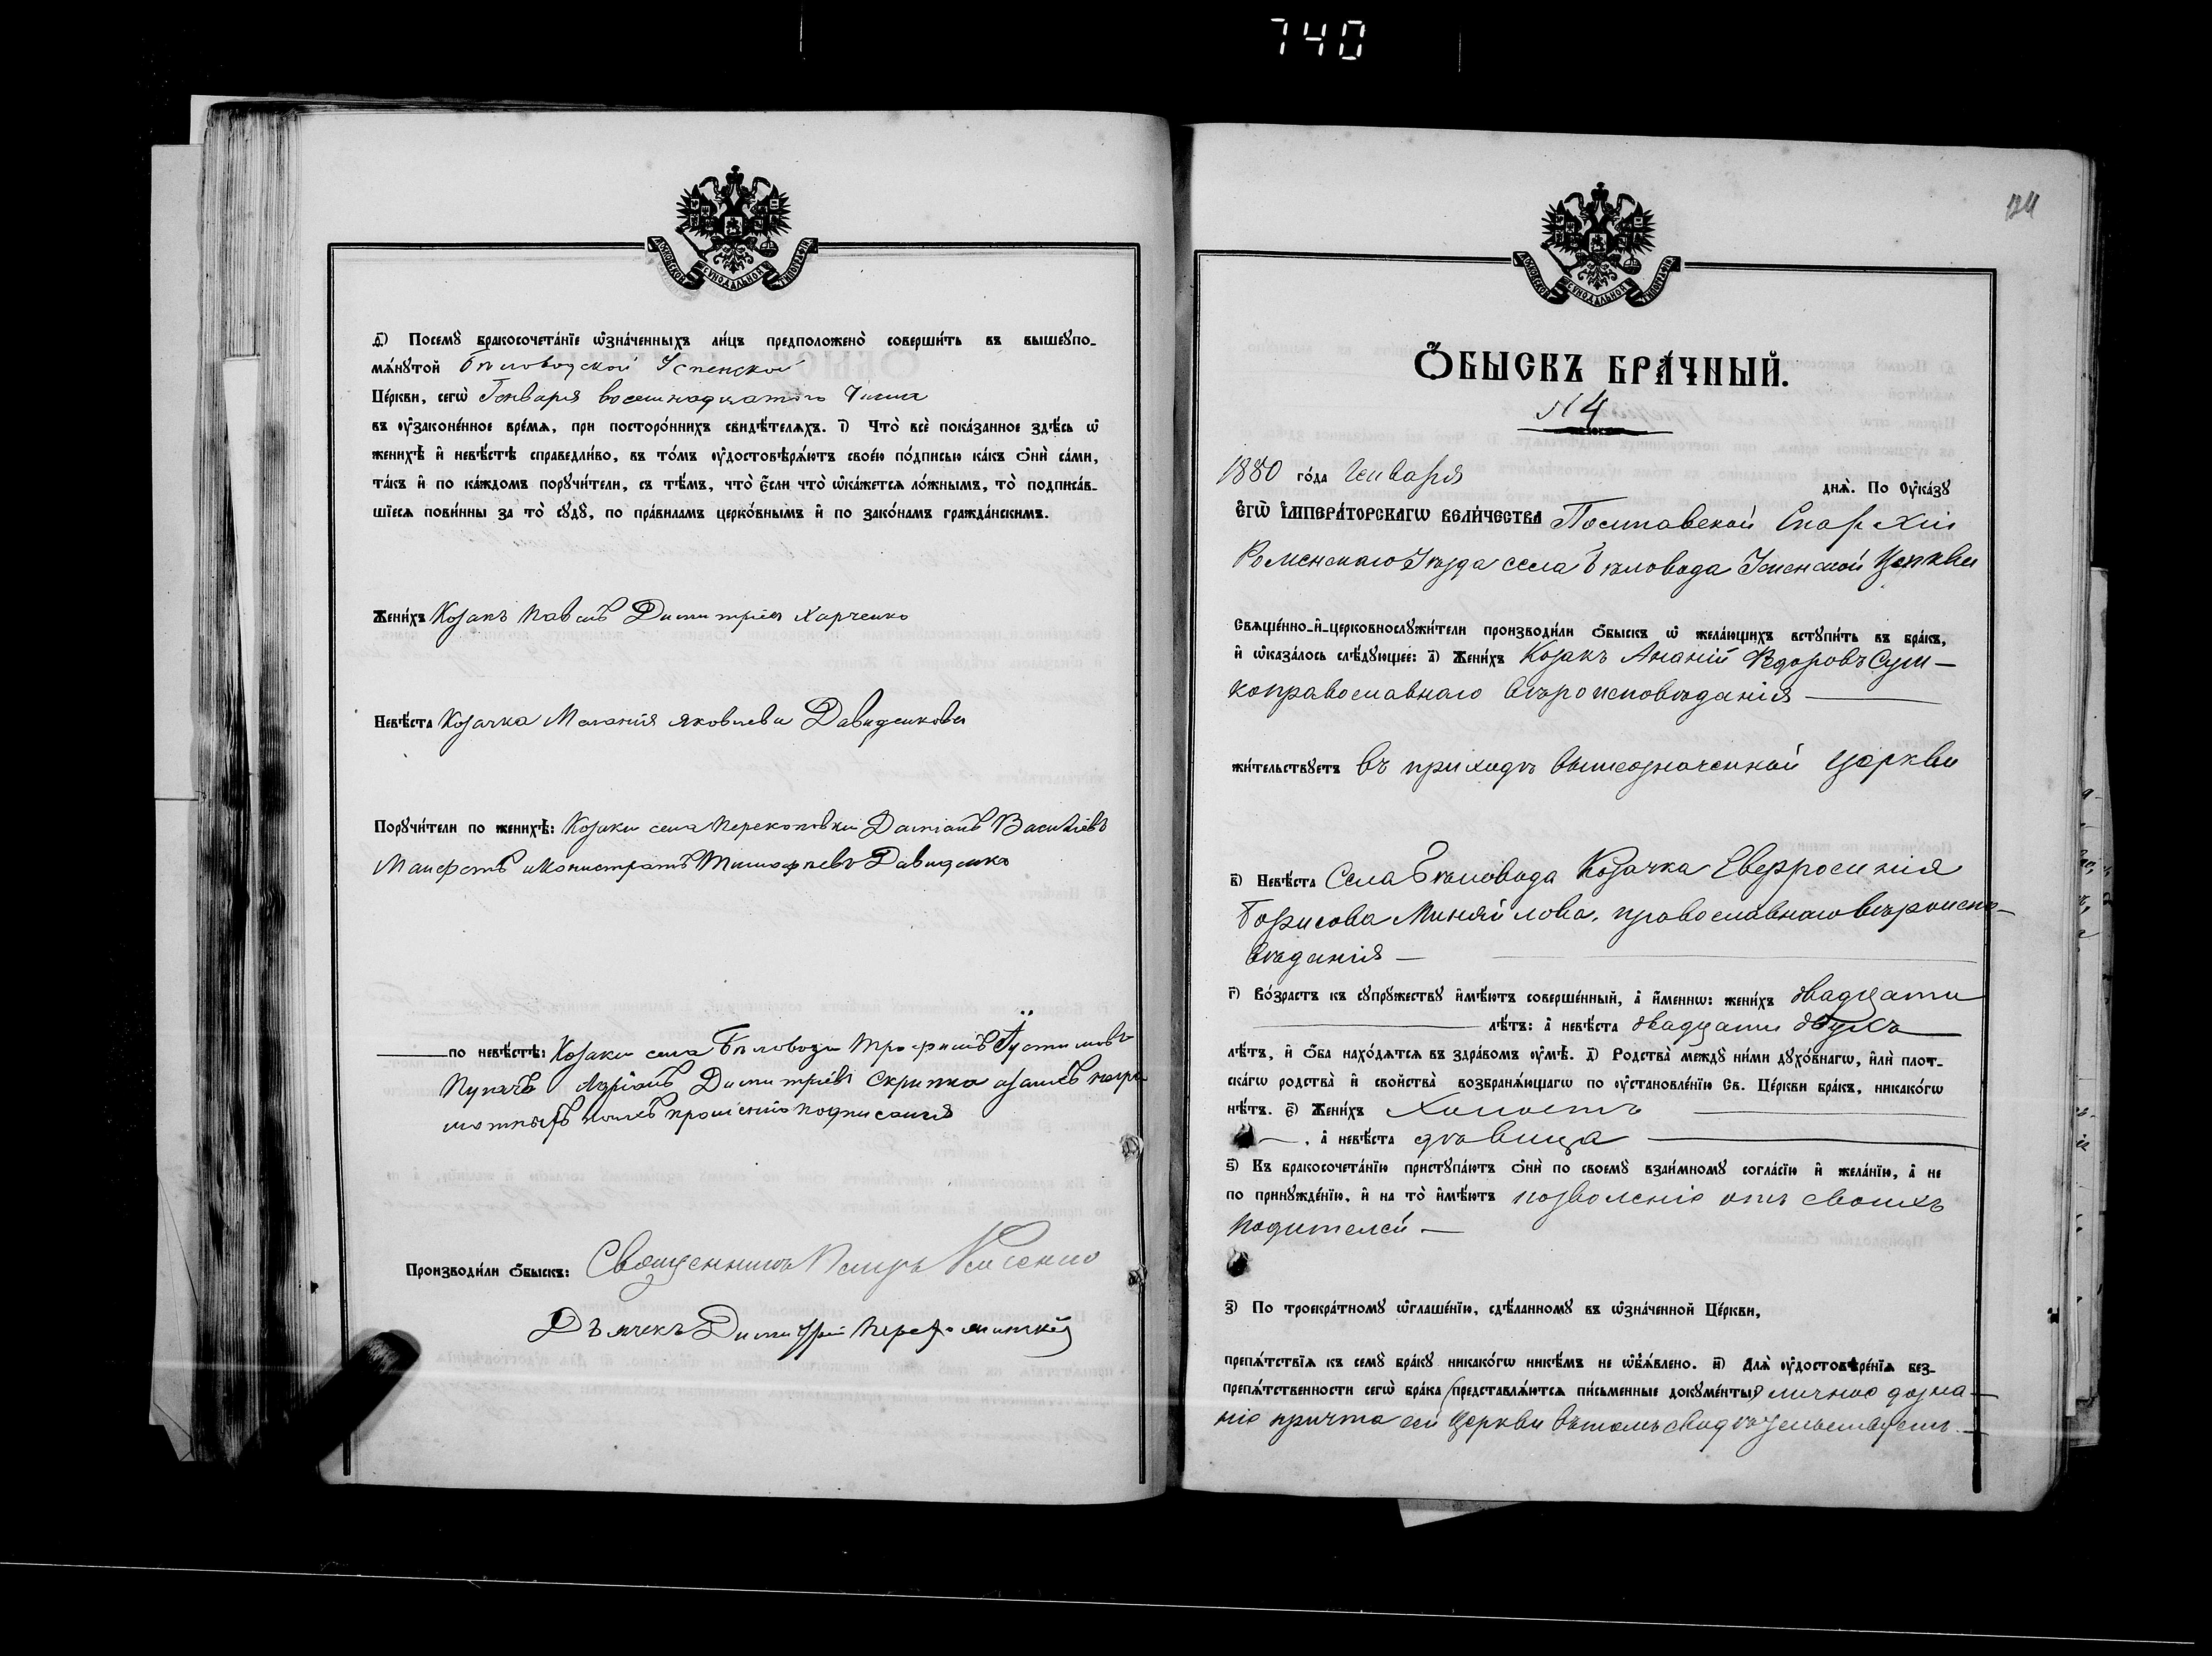 740
МОСКОВСКОЙ СѴНОДАЛЬНОЙ ТИПОГРАФІИ
д҃і) Посемꙋ̀ бракосочета́нїе ѡ҆зна́ченныхъ ли́цъ предположено̀ соверши́ть въ вышеꙋпо-
мѧ́нꙋтой Бѣловодской Успенской
Це́ркви, сегѡ̀ Генваря восемнадцатого числа
въ ᲂу҆законе́нное вре́мѧ, при посторо́ннихъ свидѣ́телѧхъ. і҃) Что̀ всѐ пока́занное здѣ́сь ѡ҆
женихѣ̀ и҆ невѣ́стѣ справедли́во, въ то́мъ ᲂу҆достовѣрѧ́ютъ свое́ю по́дписью ка́къ ѻ҆нѝ са́ми,
та́къ и҆ по ка́ждомъ порꙋчи́тели, съ тѣ́мъ, что̀ є҆́сли что̀ ѡ҆ка́жетсѧ ло́жнымъ, то̀ подписа́в-
шїесѧ пови́нны за то̀ сꙋдꙋ̀, по пра́виламъ церко́внымъ и҆ по зако́намъ гражда́нскимъ.
Жени́хъ Козакъ Павелъ Димитріев Харченко
Невѣ́ста Козачка Маланія Яковлева Давиденкова
Порꙋчи́тели по женихѣ̀: Козаки села Перекоповки Даміанъ Василіевъ
Давиденко
по невѣ́стѣ: Козаки села Бѣловода Трофимъ Густимовъ
Пугачъ Адріанъ Димитріевъ Скрипка азаихъ негра
мотныхъ поихъ прошенію подписался
Производи́ли ѻ҆́быскъ: Священникъ Петръ
Дьячекъ Димитрій
124
МОСКОВСКОЙ СѴНОДАЛЬНОЙ ТИПОГРАФІИ
Ѻ҆́БЫСКЪ БРА́ЧНЫЙ.
№ 4
1880 го́да Генваря днѧ̀. По ᲂу҆ка́зꙋ
Є҆ГѠ̀ І҆МПЕРА́ТОРСКАГѠ ВЕЛИ́ЧЕСТВА Полтавской Епархіи
Роменскаго Уѣзда села Бѣловода Успенской Церкви
Свѧще́нно-и҆-церковнослꙋжи́тели производи́ли ѻ҆́быскъ ѡ҆ жела́ющихъ встꙋпи́ть въ бра́къ,
и҆ ѡ҆каза́лось слѣ́дꙋющее: а҃) Жени́хъ Козакъ Ананій Ѳедоровъ Суш-
коправославнаго вѣроисповѣданія
жи́тельствꙋетъ въ приходѣ вышеозначенной церкви
в҃) Невѣ́ста Села Бѣловода Козачка Евфросинія
Борисова Миняйлова, православнаго вѣроиспо-
вѣданія
г҃) Во́зрастъ къ сꙋпрꙋ́жествꙋ и҆мѣ́ютъ соверше́нный, а҆ и҆́меннѡ: жени́хъ двадцати
лѣ́тъ: а҆ невѣ́ста двадцати двухъ
лѣ́тъ, и҆ ѻ҆́ба нахо́дѧтсѧ въ здра́вомъ ᲂу҆мѣ̀. д҃) Родства̀ междꙋ̀ ни́ми дꙋхо́внагѡ, и҆лѝ плот-
ска́гѡ родства̀ и҆ сво́йства возбранѧ́ющагѡ по ᲂу҆становле́нїю Св. Це́ркви бра́къ, никако́гѡ
нѣ́тъ. є҃) Жени́хъ Холостъ
, а҆ невѣ́ста дѣвица
ѕ҃) Къ бракосочета́нїю пристꙋпа́ютъ ѻ҆нѝ по своемꙋ̀ взаи́мномꙋ согла́сїю и҆ жела́нїю, а҆ не
по принꙋжде́нїю, и҆ на то̀ и҆мѣ́ютъ позволеніе отъ своихъ
Родителей
з҃) По троекра́тномꙋ ѡ҆глаше́нїю, сдѣ́ланномꙋ въ ѡ҆зна́ченной Це́ркви,
препѧ́тствїѧ къ семꙋ̀ бра́кꙋ никако́гѡ никѣ́мъ не ѡ҆б̾ѧ́влено. и҃) Длѧ̀ ᲂу҆достовѣре́нїѧ без-
препѧ́тственности сегѡ̀ бра́ка (представлѧ́ютсѧ пи́сьменные докꙋме́нты) личное дозна-
ніе причта сей Церкви вътомъ свидѣтельствуетъ.